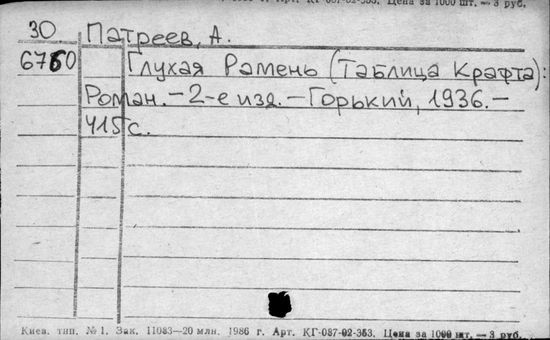 Арт. КГ-087-02-353. Цена за 1000 шт. — 3 руб.
30 Патреев, А.
6760 Глухая Рамень (Таблица Крафта):
Роман. – 2-е изд. – Горький, 1936. –
415 с.
Киев. тип. № 1. Зак. 11083—20 млн. 1986 г. Арт. КГ-087-02-353. Цена за 1000 шт. — 3 руб.